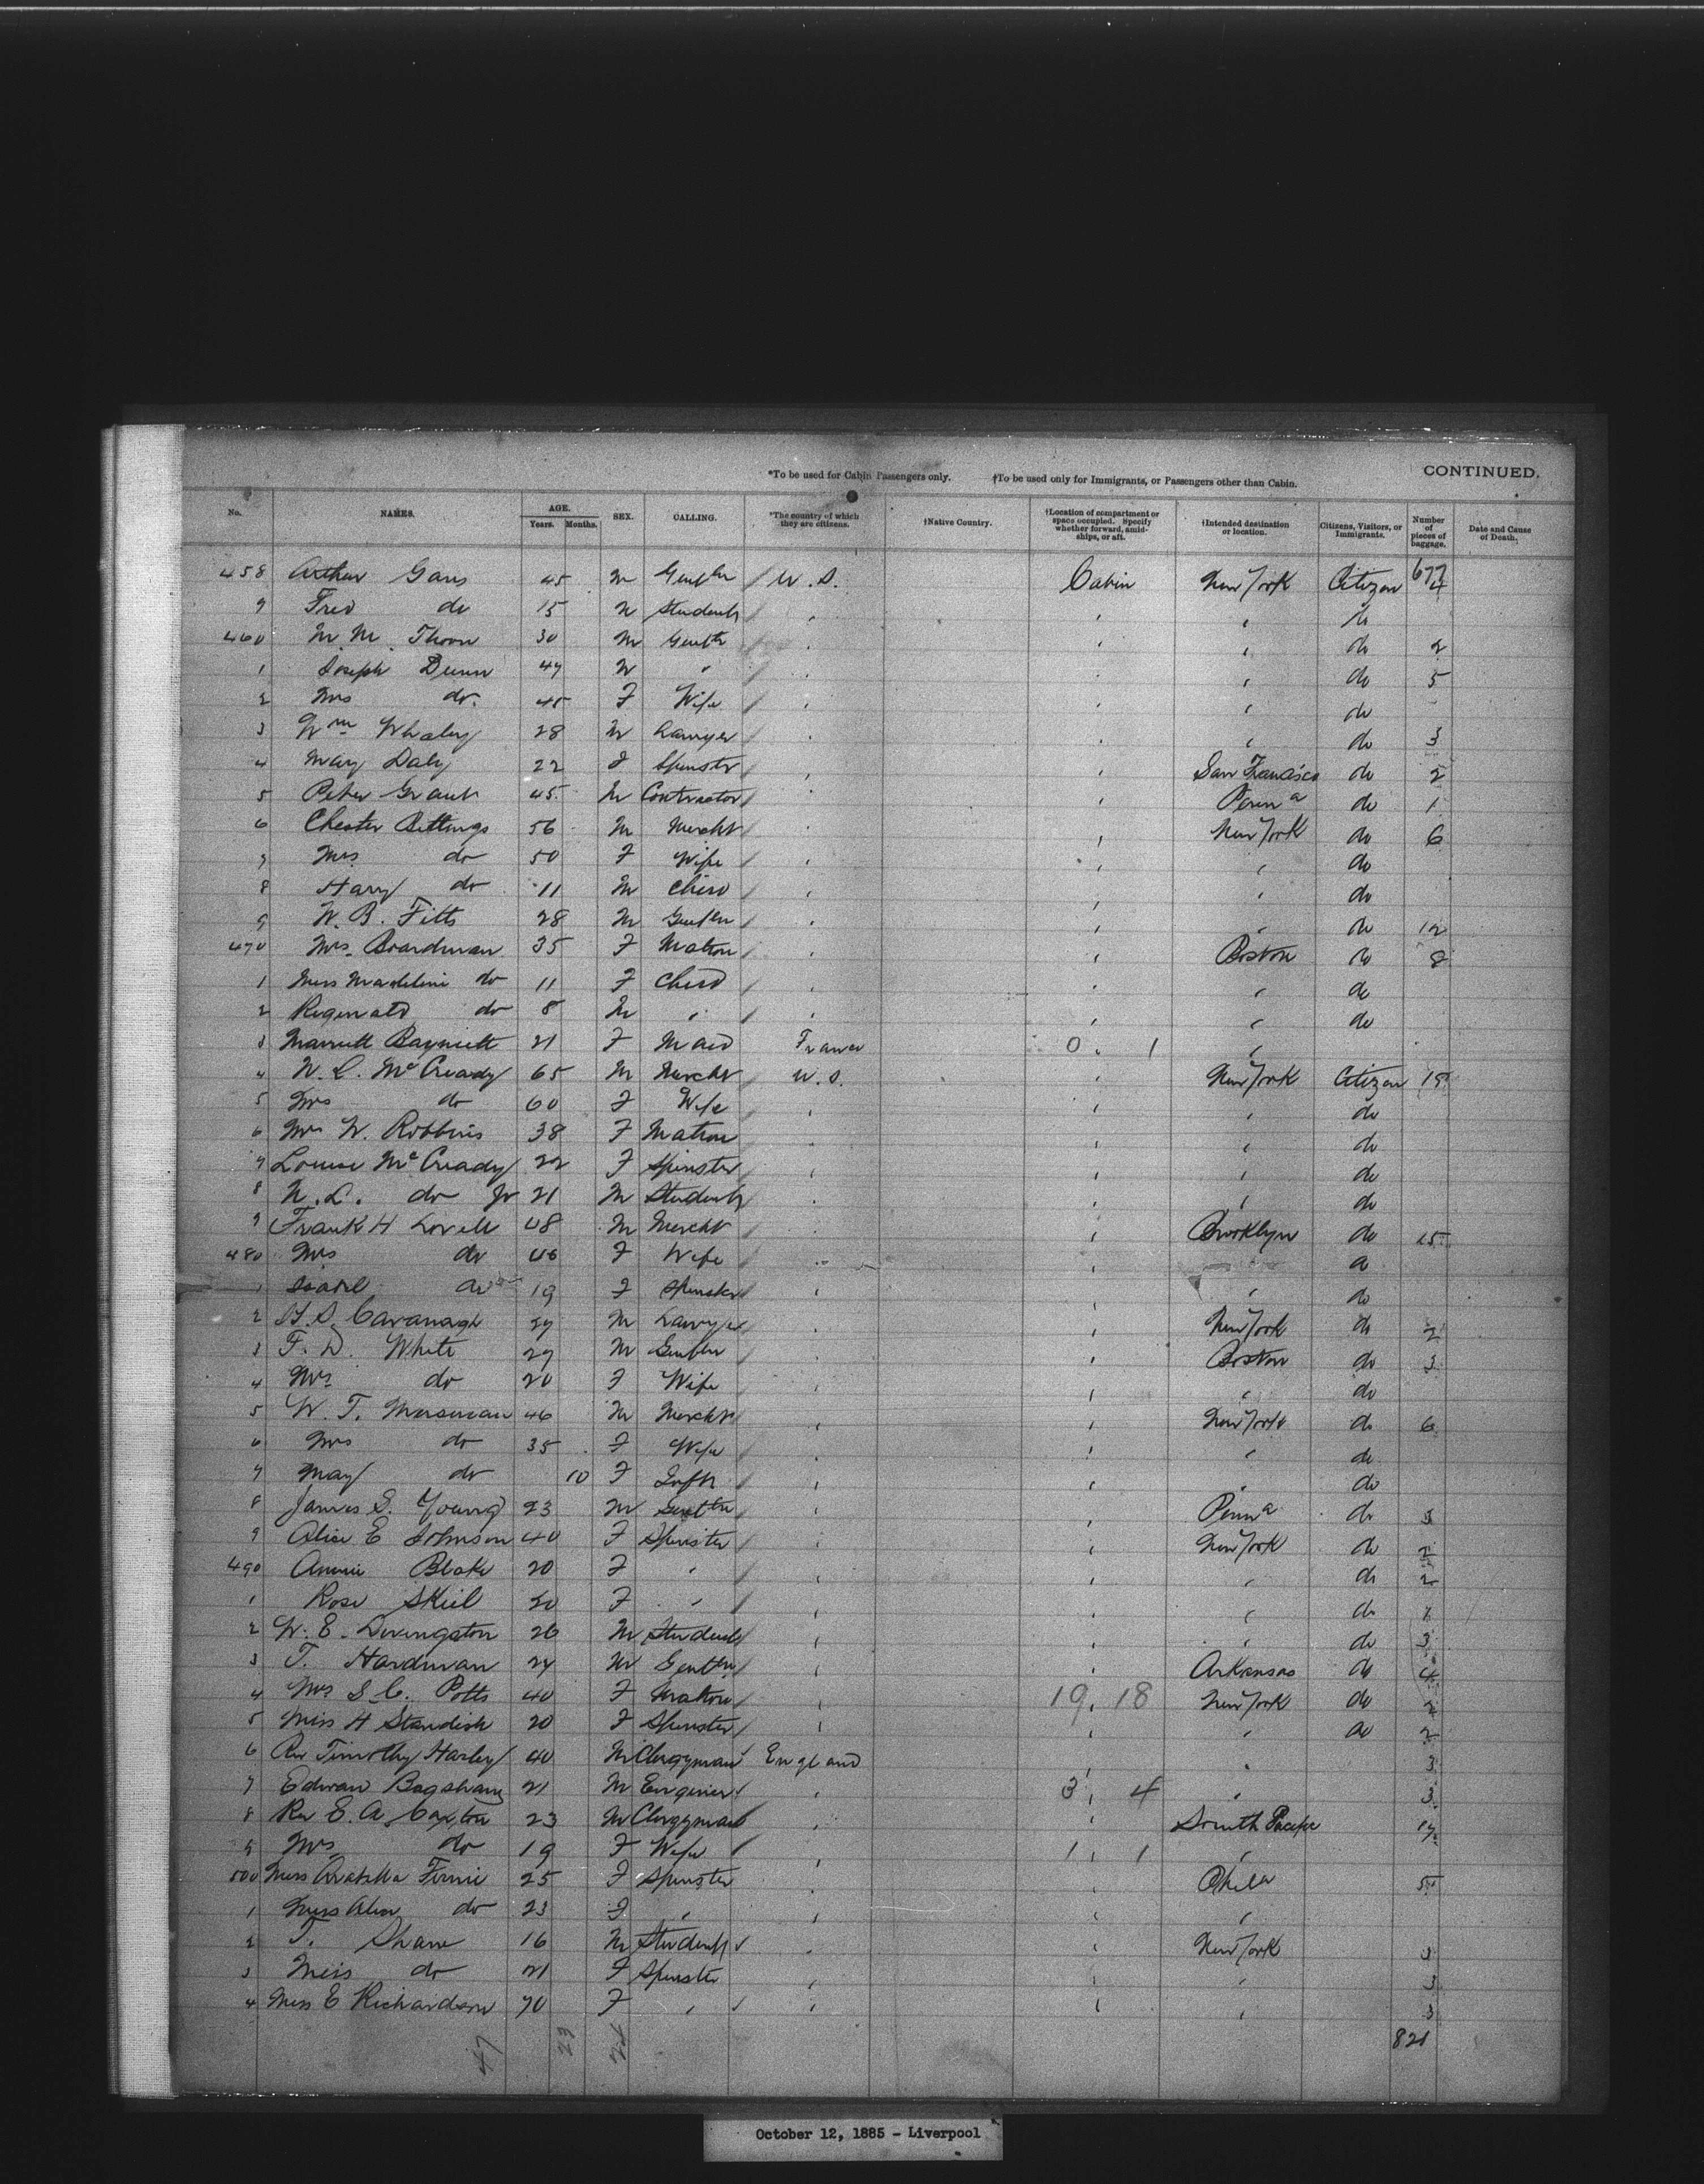 *To be used for Cabin Passengers only. †To be used only for Immigrants, or Passengers other than Cabin. CONTINUED.
No. NAMES. AGE. Years. Months. SEX. CALLING. *The country of which they are citizens. †Native Country. †Location of compartment or space occupied. Specify whether forward, amidships, or aft. †Intended destination or location. Citizens, Visitors, or Immigrants. Number of pieces of baggage. Date and Cause of Death.
458 Arthur Gans 45 M Gentln U.S. Cabin New York Citizen 677
9 Fred do 15 M Student do
460 M. M. Thorn 30 M Gentln do 2
1 Joseph Dunn 47 M " do 5
2 Mrs do 45 F Wife do
3 Wm Whaley 28 M Lawyer do 3
4 Mary Daly 22 F Spinster San Francisco do 2
5 Peter Grant 45 M Contractor Penna do 1
6 Chester Bettings 56 M Mercht New York do 6
7 Mrs do 50 F Wife do
8 Harry do 11 M Child do
9 W. B. Fitts 28 M Gentln do 12
470 Mrs. Boardman 35 F Matron Boston do 8
1 Miss Madeline do 11 F Child do
2 Reginald do 8 M " do
3 21 F Maid France 0 1
4 N. L. McCready 65 M Mercht U.S. New York Citizen 19
5 Mrs do 60 F Wife do
6 Mrs W. Robbins 38 F Matron do
7 Louise McCready 22 F Spinster do
8 N. L. do Jr 21 M Student do
9 Frank H Lovell 48 M Mercht Brooklyn do 15
480 Mrs do 46 F Wife do
1 Isabel do 19 F Spinster do
2 Cavanagh 27 M Lawyer New York do 2
3 F. D. White 27 M Gentln Boston do 3
4 Mrs do 20 F Wife do
5 W. T. 46 M Mercht New York do 6
6 Mrs do 35 F Wife do
7 May do 10 F Inft do
8 James S. Young 23 M Gentln Penna do 3
9 Alice E Johnson 40 F Spinster New York do 2
490 Annie Blake 20 F " do 2
1 Rose Skiel 20 F " do 1
2 W. E. Livingston 26 M Student do 3
3 T. Hardman 24 M Gentln Arkansas do 4
4 Mrs S. C. Potts 40 F Matron 19 18 New York do 2
5 Miss H Standish 20 F Spinster do 2
6 Rev Timothy Harley 40 M Clergyman England 3
7 Edward Bagshaw 21 M Engineer 3 4 3
8 Rev E. A. Caxton 23 M Clergyman South Pacific 17
9 Mrs do 19 F Wife 1 1
500 Miss Arabella Fernie 25 F Spinster Phila 5
1 Miss Alice do 23 F "
2 T. Shaw 16 M Student New York 3
3 Miss do 21 F Spinster 3
4 Miss E Richardson 70 F " 3
47 23 24 821
October 12, 1885 - Liverpool